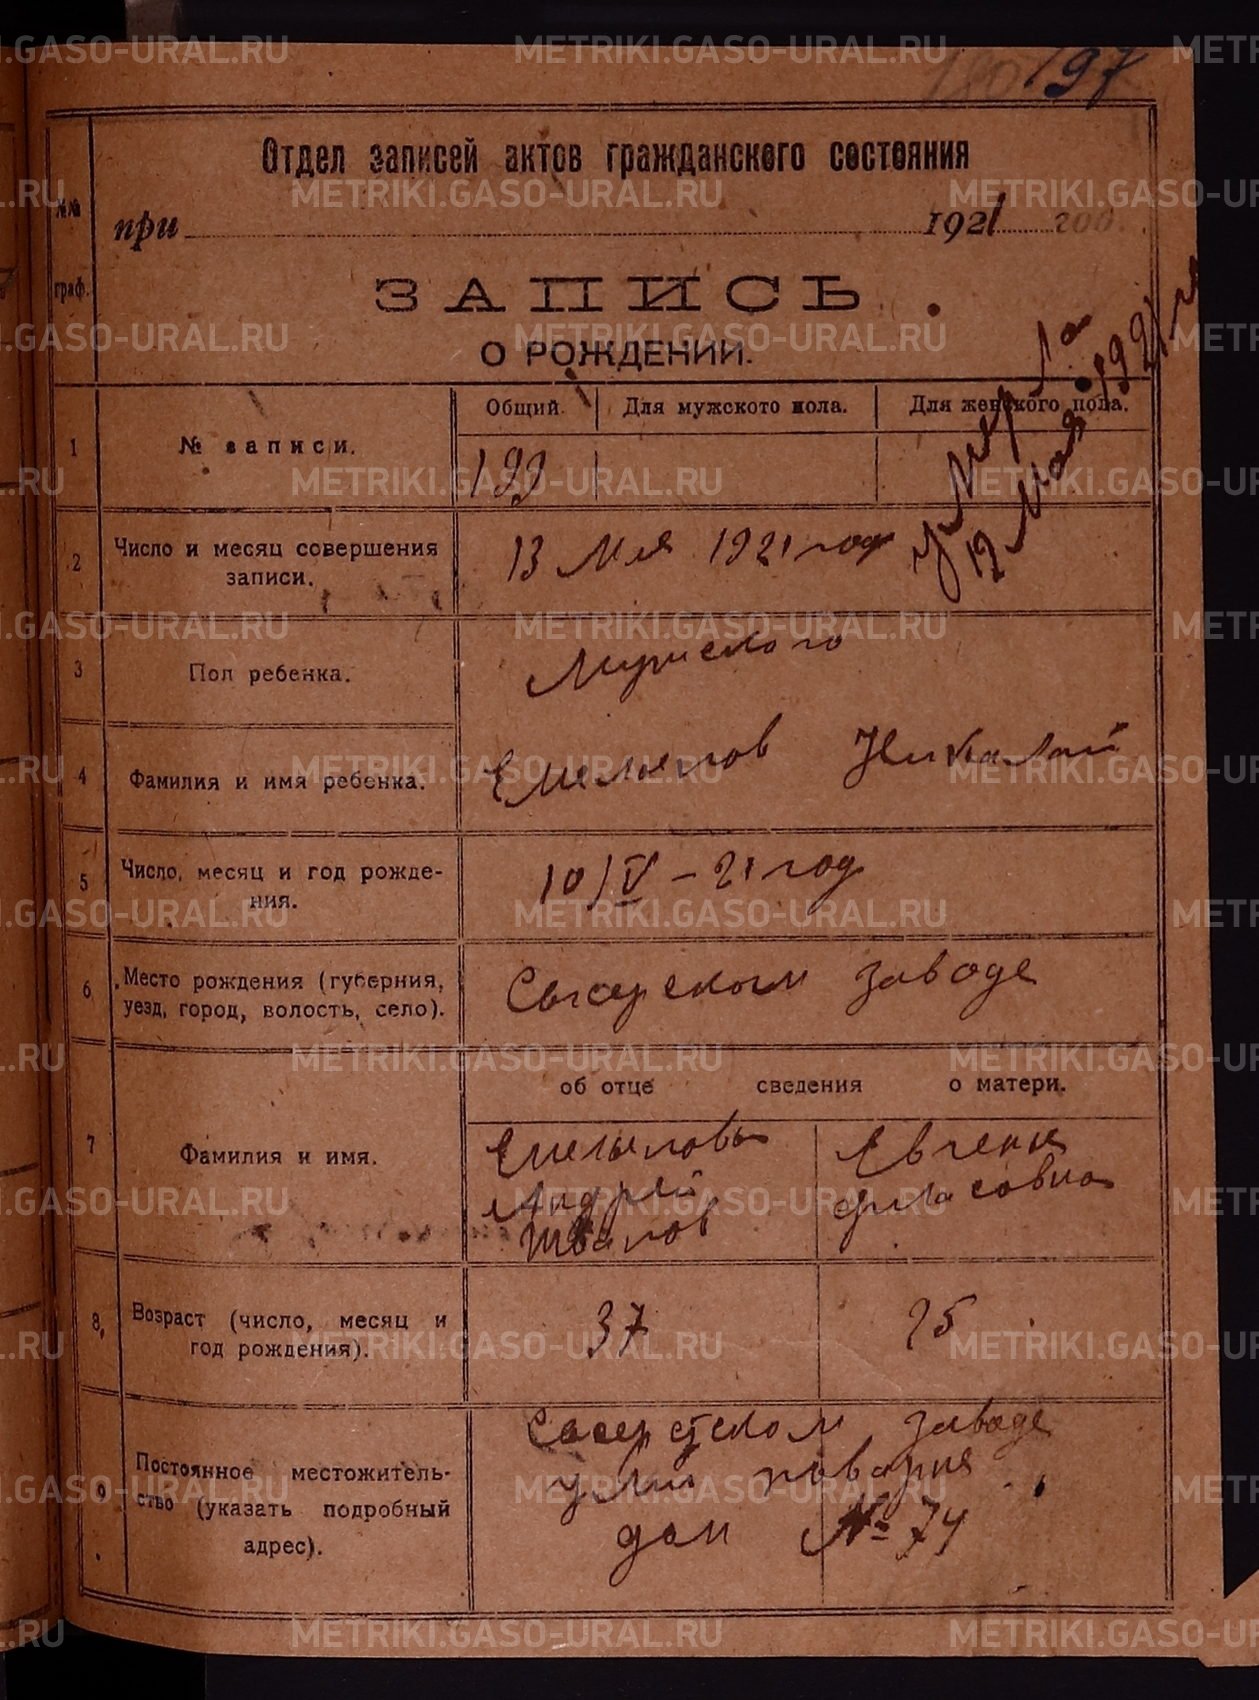 180 197
Отдел записей актов гражданского состояния
№№
граф.
при 1921 год.
ЗАПИСЬ
О РОЖДЕНИИ.
Умерла
12 Мая 1921 г
Общий Для мужского пола. Для женского пола.
1 № записи. 199
2 Число и месяц совершения
записи.
13 Мая 1921 год
3 Пол ребенка. Мужского
4 Фамилия и имя ребенка. Емельянов Николай
5 Число, месяц и год рожде-
ния.
10/V – 21 год
6 Место рождения (губерния,
уезд, город, волость, село).
Сысерском заводе
об отце сведения о матери.
7 Фамилия и имя.
Емельяновы Евгения
Андрей
Иванов
8. Возраст (число, месяц и
год рождения).
37 25
9 Постоянное местожитель-
ство (указать подробный
адрес).
заводе
дом № 74
METRIKI.GASO-URAL.RU